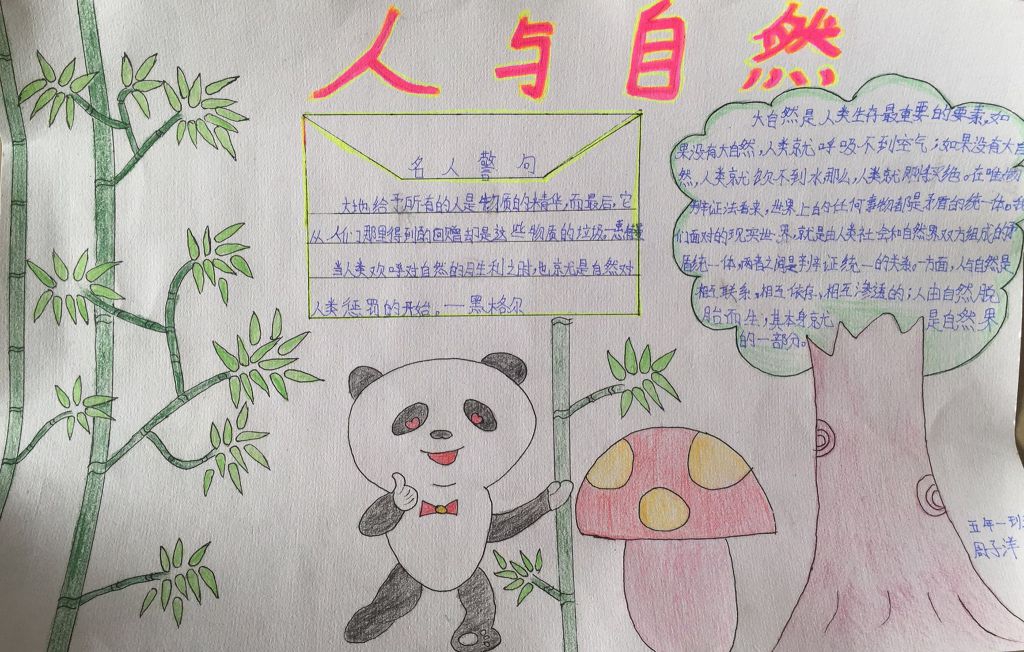 人与自然
名人警句
大地给予所有的人是物质的精华,而最后,它
从人们那里得到的回赠却是这些物质的垃圾
当人类欢呼对自然的胜利之时,也就是自然对
人类惩罚的开始。——黑格尔
大自然是人类生存最重要的要素,如
果没有大自然,人类就呼吸不到空气;如果没有大自
然,人类就饮不到水那么,人类就刚灭绝。在唯物
辩证法看来,世界上的任何事物都是矛盾的统一体。我
们面对的现实世界,就是由人类社会和自然界双方组成的矛
盾统一体,两者之间是辩证统一的关系。一方面,人与自然是
相互联系,相互依存,相互渗透的;人由自然脱
胎而生,其本身就是自然界
的一部分。
五年一班
周子洋